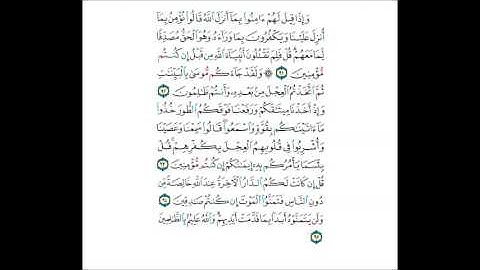 وَإِذَا قِيلَ لَهُمْ ءَامِنُوا۟ بِمَآ أَنزَلَ ٱللَّهُ قَالُوا۟ نُؤْمِنُ بِمَآ
أُنزِلَ عَلَيْنَا وَيَكْفُرُونَ بِمَا وَرَآءَهُۥ وَهُوَ ٱلْحَقُّ مُصَدِّقًا
لِّمَا مَعَهُمْ ۗ قُلْ فَلِمَ تَقْتُلُونَ أَنۢبِيَآءَ ٱللَّهِ مِن قَبْلُ إِن كُنتُم
مُّؤْمِنِينَ ٩١ ۞ وَلَقَدْ جَآءَكُم مُّوسَىٰ بِٱلْبَيِّنَٰتِ
ثُمَّ ٱتَّخَذْتُمُ ٱلْعِجْلَ مِنۢ بَعْدِهِۦ وَأَنتُمْ ظَٰلِمُونَ ٩٢
وَإِذْ أَخَذْنَا مِيثَٰقَكُمْ وَرَفَعْنَا فَوْقَكُمُ ٱلطُّورَ خُذُوا۟
مَآ ءَاتَيْنَٰكُم بِقُوَّةٍ وَٱسْمَعُوا۟ ۖ قَالُوا۟ سَمِعْنَا وَعَصَيْنَا
وَأُشْرِبُوا۟ فِى قُلُوبِهِمُ ٱلْعِجْلَ بِكُفْرِهِمْ ۚ قُلْ
بِئْسَمَا يَأْمُرُكُم بِهِۦٓ إِيمَٰنُكُمْ إِن كُنتُم مُّؤْمِنِينَ ٩٣
قُلْ إِن كَانَتْ لَكُمُ ٱلدَّارُ ٱلْءَاخِرَةُ عِندَ ٱللَّهِ خَالِصَةً مِّن
دُونِ ٱلنَّاسِ فَتَمَنَّوُا۟ ٱلْمَوْتَ إِن كُنتُمْ صَٰدِقِينَ ٩٤
وَلَن يَتَمَنَّوْهُ أَبَدًۢا بِمَا قَدَّمَتْ أَيْدِيهِمْ ۗ وَٱللَّهُ عَلِيمٌۢ بِٱلظَّٰلِمِينَ
٩٥